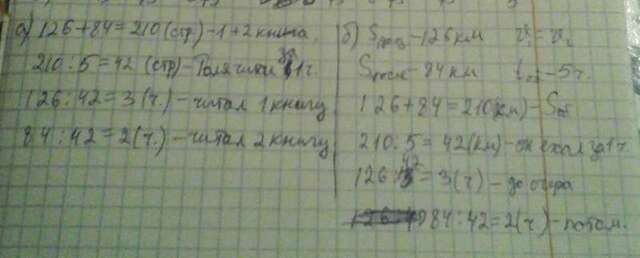 а) 126+84=210 (стр) - 1+2 книга.
210:5=42 (стр) - Поля читал за 1 ч.
126:42=3 (ч.) - читал 1 книгу
84:42=2 (ч.) - читал 2 книгу
б) S - 126 км v = v
S - 84 км t - 5 ч.
126+84=210 (км) - S
210:5=42 (км) - он ехал за 1 ч
126:42=3 (ч) - до озера
84:42=2 (ч) - потом.